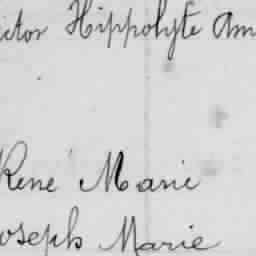 ictor Hippolyte Am
René Marie
oseph Marie